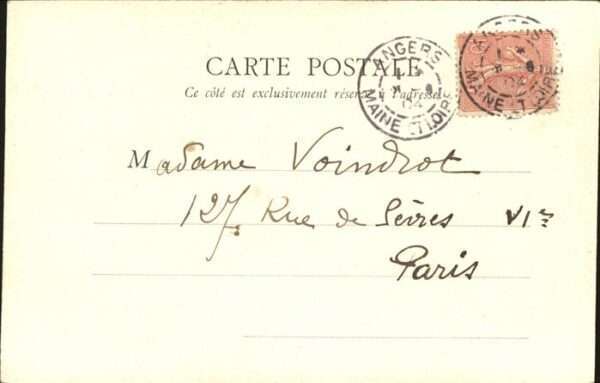 CARTE POSTALE
Ce côté est exclusivement réservé à l'adresse
ANGERS
04
MAINE ET LOIRE
MAINE ET LOIRE
Madame Voindrot
127, Rue de Sèvres VIe
Paris